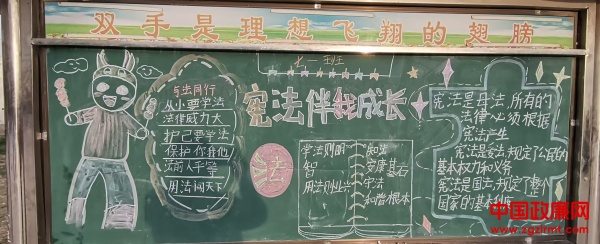 双手是理想飞翔的翅膀
七一班
与法同行
从小要学法
法律威力大
护己要学法
保护你我他
法商人手掌
用法闯天下
宪法伴我成长
法
学法则明
智
用法则业兴
知法
安康基石
守法
和谐根本
宪法是母法,所有的
法律必须根据
宪法产生
宪法是妥法,规定了公民的
基本权力和义务
宪法是国法,规定了整个
国家的基本
中国政廉网
www.zgzlrmt.com